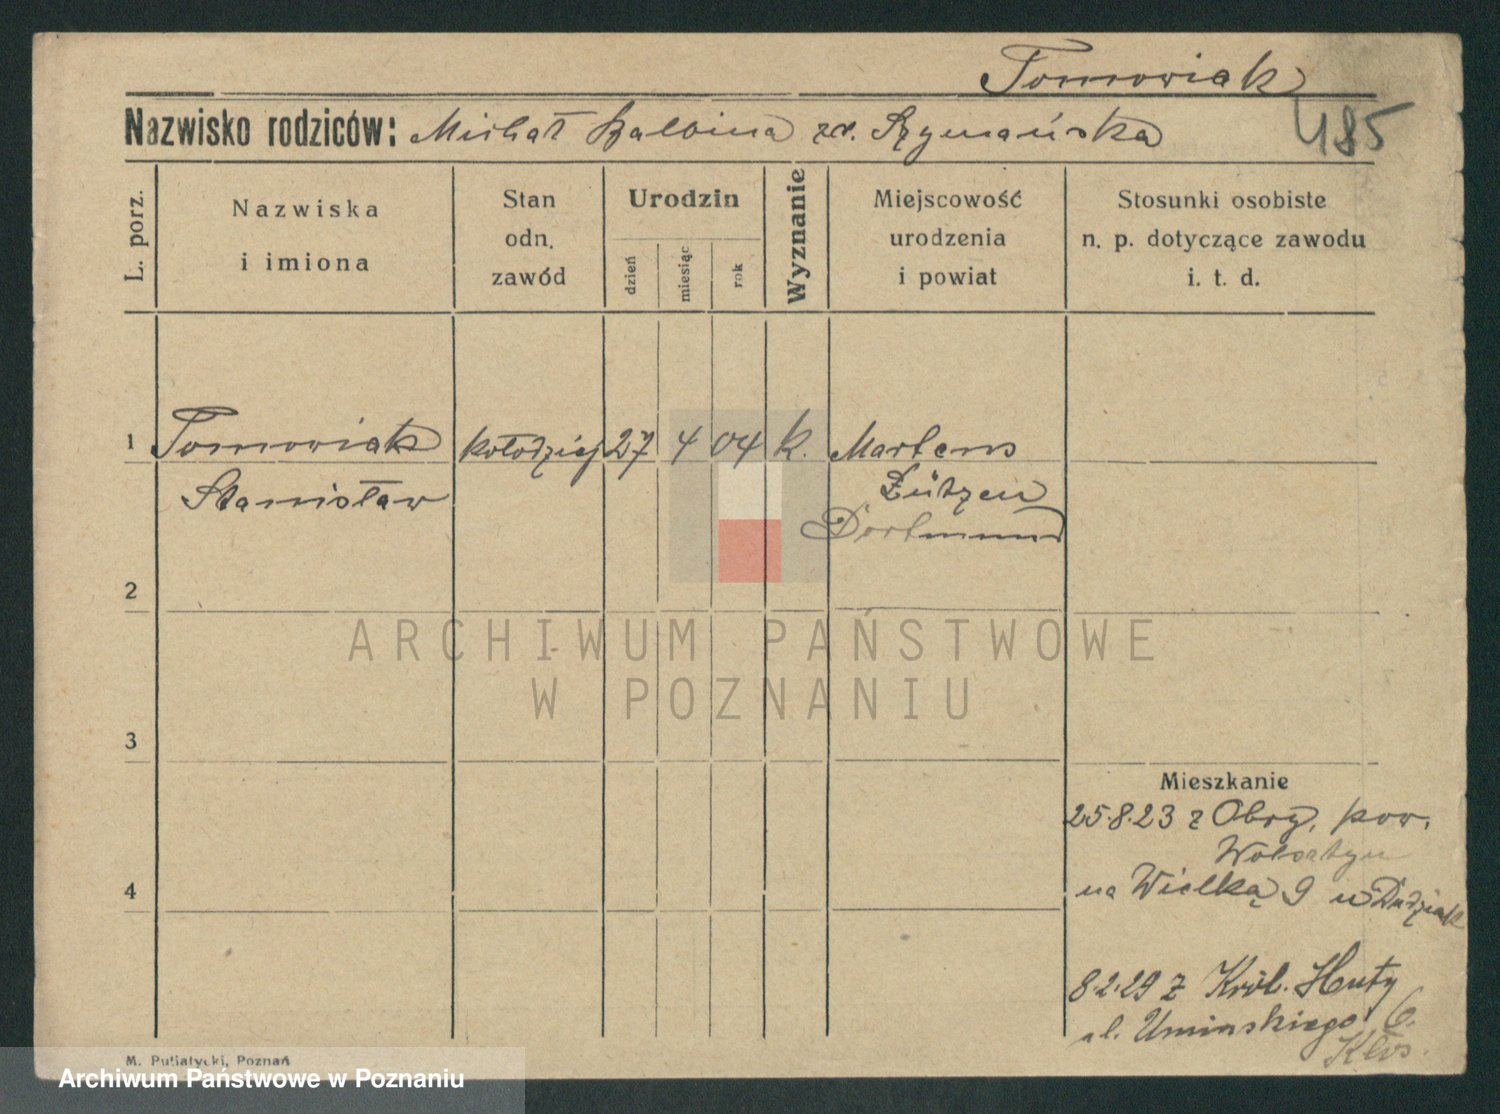 Tomowiak
Nazwisko rodziców: Michał Balbina zd. Szymańska 485
L. porz.
Nazwiska
i imiona
Stan
odn.
zawód
Urodzin
dzień
miesiąc
rok
Wyznanie
Miejscowość
urodzenia
i powiat
Stosunki osobiste
n. p. dotyczące zawodu
i. t. d.
1 Tomowiak kołodziej 27 4 04 k. Martens
Stanisław Lützen
Dortmund
2
ARCHIWUM PAŃSTWOWE
W POZNANIU
3
Mieszkanie
25.8.23 z Obry, pow.
Wolsztyn
4
na Wielką 9 u Dudziak
8.2.29 z Król. Huty
ul. Umińskiego 6.
M. Putiatycki, Poznań
Archiwum Państwowe w Poznaniu